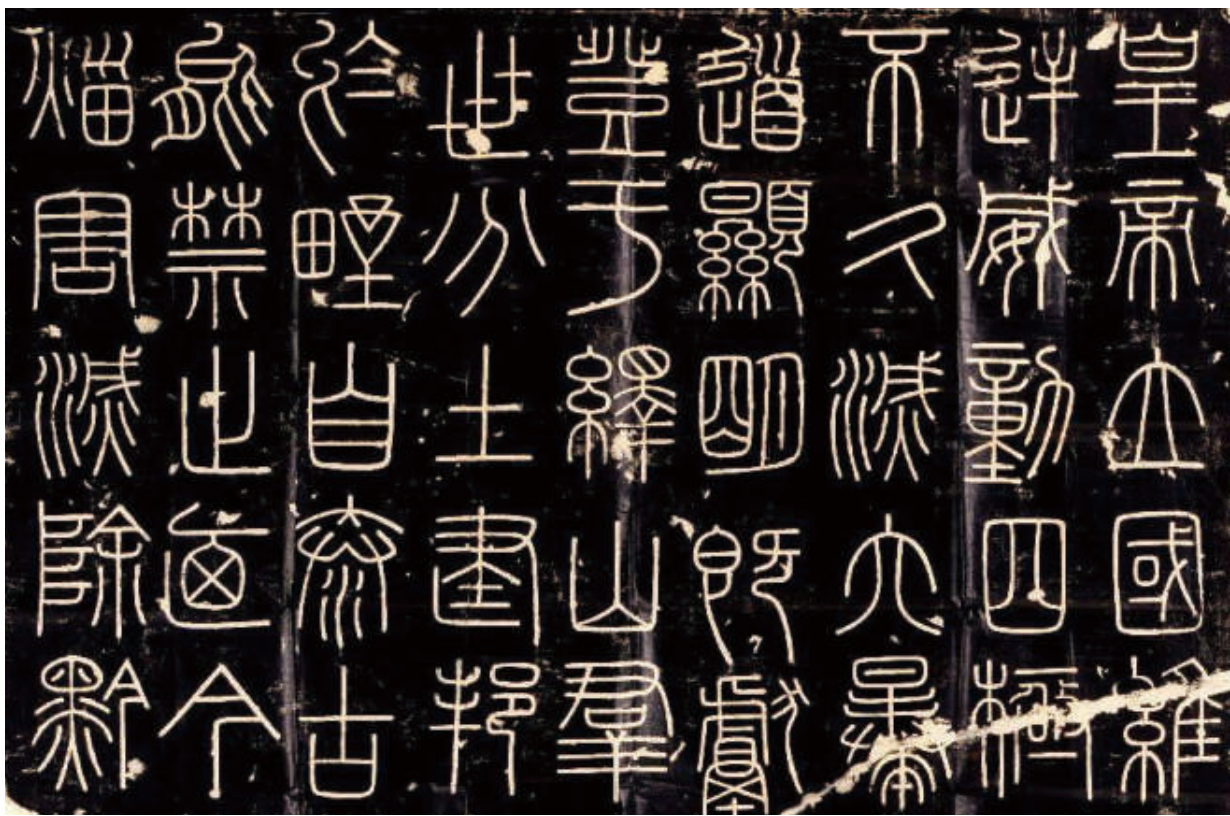 皇帝立國維
逆威動四極
不久滅六暴
道顯明既獻
登于繹山羣
世分土建邦
於野自泰古
能禁止迺今
災害滅除黔